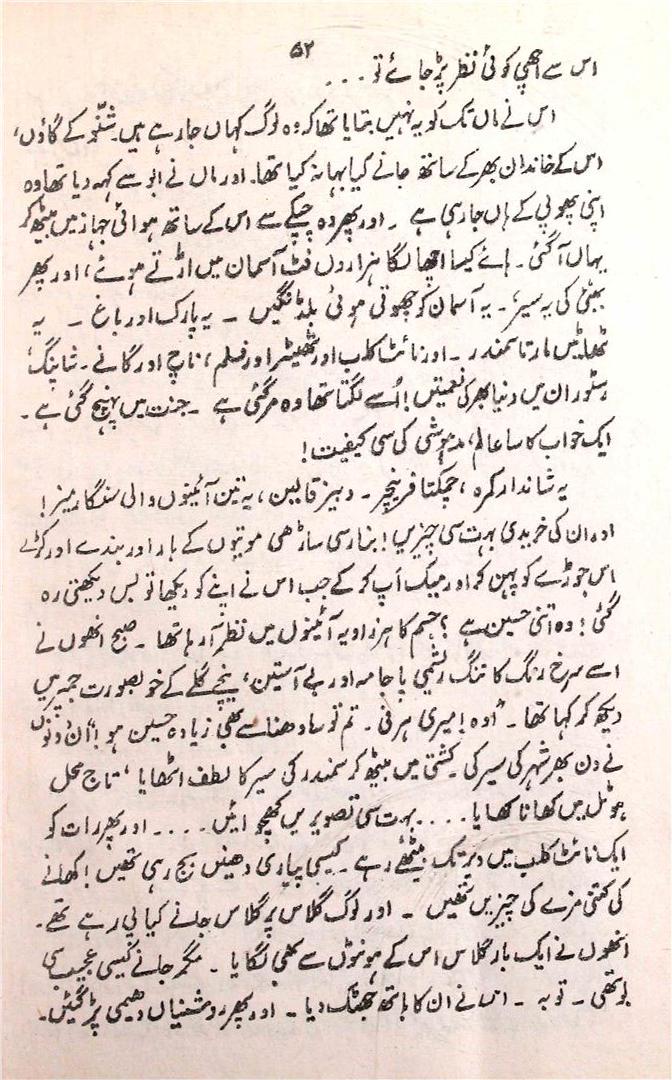 ۵۲
اس سے اچھی کوئی نظر پڑ جائے تو . . .
اس نے ماں تک کو یہ نہیں بتایا تھا کہ وہ لوگ کہاں جا رہے ہیں۔ شنّو کے گاؤں،
اس کے خاندان بھر کے ساتھ جانے کیا بہانہ کیا تھا۔ اور ماں نے ابو سے کہہ دیا تھا وہ
اپنی پھوپی کے ہاں جا رہی ہے ۔ اور پھر وہ چپکے سے اس کے ساتھ ہوائی جہاز میں بیٹھ کر
یہاں آ گئی ۔ ہائے کیسا اچھا لگا ہزاروں فٹ آسمان میں اڑتے ہوئے، اور پھر
بمبئی کی یہ سیر ۔ یہ آسمان کو چھوتی ہوئی بلڈنگیں ۔ یہ پارک اور باغ ۔ یہ
ٹھاٹھیں مارتا سمندر ۔ اور نائٹ کلب اور تھیٹر اور فلم، ناچ اور گانے ۔ شاپنگ،
رسٹوران میں دنیا بھر کی نعمتیں! اُسے لگتا تھا وہ مر گئی ہے ۔ جنت میں پہنچ گئی ہے ۔
ایک خواب کا سا عالم، مدہوشی کی سی کیفیت!
یہ شاندار کمرہ، چمکتا فرنیچر ۔ دبیز قالین، یہ تین آئینوں والی سنگار میز!
اور ان کی خریدی بہت سی چیزیں! بنارسی ساڑھی موتیوں کے ہار اور بندے اور کڑے
اس جوڑے کو پہن کر اور میک اَپ کر کے جب اس نے اپنے کو دیکھا تو بس دیکھتی رہ
گئی! وہ اتنی حسین ہے؟ جسم کا ہر زاویہ آئینوں میں نظر آ رہا تھا ۔ صبح انھوں نے
اسے سرخ رنگ کا تنگ ریشمی پاجامہ اور بے آستین، نیچے گلے کے خوبصورت جمپر میں
دیکھ کر کہا تھا ۔ "اوہ! میری ہرنی ۔ تم تو سادھنا سے بھی زیادہ حسین ہو!" ان دونوں
نے دن بھر شہر کی سیر کی ۔ کشتی میں بیٹھ کر سمندر کی سیر کا لطف اٹھایا، تاج محل
ہوٹل میں کھانا کھایا . . . . بہت سی تصویریں کھچوائیں . . . . اور پھر رات کو
ایک نائٹ کلب میں دیر تک بیٹھے رہے ۔ کیسی پیاری دھنیں بج رہی تھیں! کھانے
کی کتنی مزے کی چیزیں تھیں ۔ اور لوگ گلاس پر گلاس جانے کیا پی رہے تھے ۔
انھوں نے ایک بار گلاس اس کے ہونٹوں سے بھی لگایا ۔ مگر جانے کیسی عجیب سی
بو تھی ۔ توبہ ۔ اس نے ان کا ہاتھ جھٹک دیا ۔ اور پھر روشنیاں دھیمی پڑ گئیں ۔